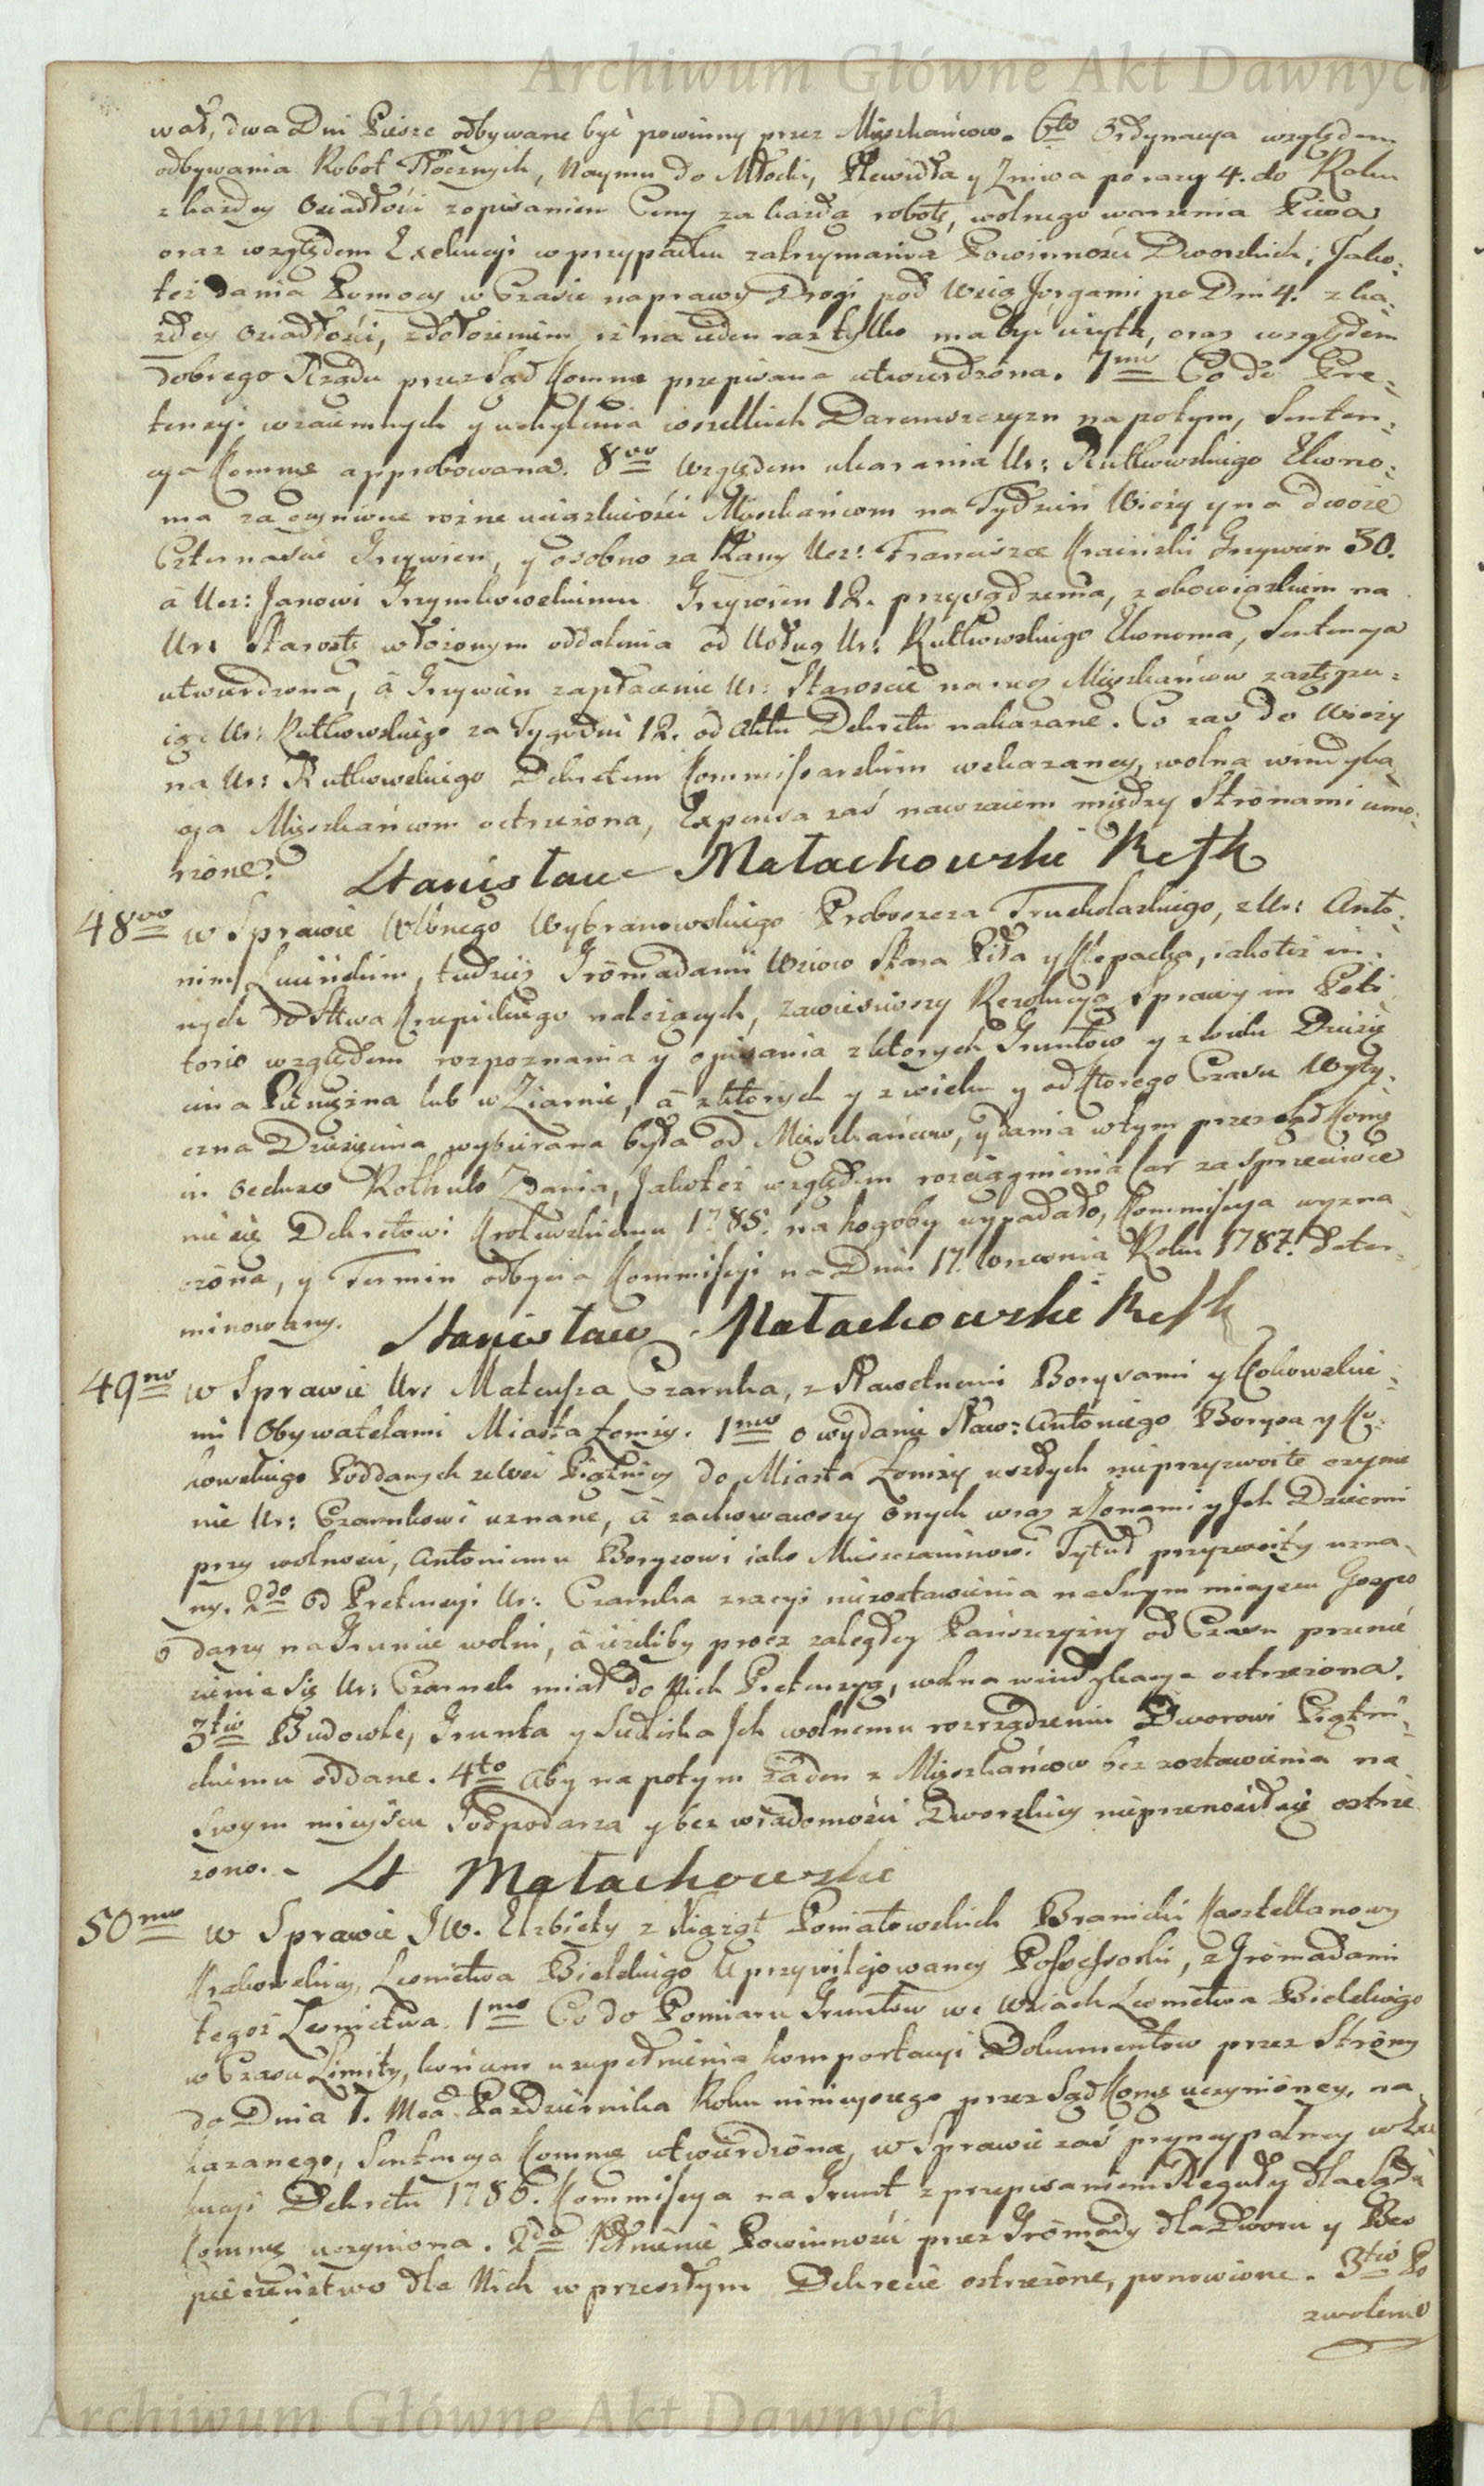 Archiwum Główne Akt Dawnych
wał, dwa Dni Piesze odbywane być powinny przez Mieszkańcow. 6to Ordynacya względem
odbywania Robot Tłocznych, Naymu do Młocki, Plewidła y Zniwa po razy 4. do Roku
z każdey Osiadłości zopisaniem Ceny za każdą robotę, wolnego warzenia Piwa
oraz względem Exekucyi w przypadku zatrzymania Powinności Dworskich; Jako:
też dania Pomocy w Czasie naprawy Drogi pod Wsią Jorgami po Dni 4. z ka:
żdey Osiadłości, zdołożeniem iż na ieden raz tylko ma być użyta, oraz względem
dobrego Rządu przez Sąd Komme przepisana utwierdzona. 7mo Co do Pre:
tensyi wzaiemnych y uchylenia wszelkich Daremszczyzn napotym, Senten:
cya Komme approbowana. 8vo Względem ukarania Ur: Rutkowskiego Ekono:
ma za czynione rożne uciążliwości Mieszkańcom na Tydzień Wieży y na dwoie
Czternaście Grzywien, y osobno za Rany Ucz: Franciszce Grzywien 30.
à Ucz: Janowi Grzymkowskiemu Grzywien 12. przysądzenia, z obowiązkiem na
Ur: Starostę włożonym oddalenia od Usług Ur: Rutkowskiego Ekonoma, Sentencya
utwierdzona, à Grzywien zapłacenie Ur: Staroscie na rzecz Mieszkańcow zastępu:
iąc Ur: Rutkowskiego za Tygodni 12. od Aktu Dekretu nakazane. Co zaś do Wieży
na Ur: Rutkowskiego Dekretem Kommissarskim wskazaney, wolna windyka
cya Mieszkańcom ostrzeżona, Expensa zaś nawzaiem między Stronami umo:
rzone.
Stanisław Małachowski RefK
48vo w Sprawie Wbnego Wybranowskiego Proboszcza Truskolaskiego, z Ur: Anto:
nim, tudzież Gromadami Wsiow Stara Piła y Klepacka, iakoteż in:
nych do Sttwa Krzepickiego należących, zawiesiwszy Rezolucyą Sprawy in Peti
torio względem rozpoznania y opisania z ktorych Gruntow y z wielu Dziesię
cina Pieniężna lub w Ziarnie, à z ktorych y z wielu y od ktorego Czasu Wyty:
czna Dziesięcina wybierana była od Mieszkańcow, y dania w tym przez Sąd Komę
in Zdania, Jakoteż względem rozciągnienia kar za sprzeciwie
nie się Dekretowi Krolewskiemu 1785. na kogoby wypadało, Kommissya wyzna
czona, y Termin odbycia Kommissyi na Dniu 17. Wrzesnia Roku 1787. deter
minowany.
Stanisław Małachowski RefK
49no w Sprawie Ur: Mateusza Czarnka, z Sławetnemi Borysami y Kokowskie:
mi Obywatelami Miasta Łomży. 1mo o wydanie Sław: Antoniego Borysa y Ko:
kowskiego Poddanych ze Wsi Piątnicy do Miasta Łomży uszłych nieprzyzwoite czynie
nie Ur: Czarnkowi uznane, à zachowawszy onych wraz z Zonami y Ich Dziecmi
przy wolnosci, Antoniemu Borysowi iako Mieszczaninowi Tytuł przyzwoity uzna
ny. 2do Od Pretensyi Ur: Czarnka z racyi niezostawienia na Swym mieyscu Gospo
darzy na Gruncie wolni, à ieżeliby procz zaległey Pańszczyzny od Czasu przenie
sienia się Ur: Czarnek miał do Nich Pretensyą, wolna windykacya ostrzeżona.
3tio Budowle, Grunta y Siedliska Ich wolnemu rozrządzeniu Dworowi Piątni:
ckiemu oddane. 4to Aby napotym żaden z Mieszkańcow bez zostawienia na
Swym mieyscu Gospodarza y bez wiadomości Dworskiey nieprzenosił się ostrze
żono. -
St Małachowski
50mo w Sprawie JW. Elzbiety z Xiążąt Poniatowskich Branickiey Kasztellanowy
Krakowskiey, Lesnictwa Bielskiego Uprzywilejowaney Possessorki, z Gromadami
tegoż Lesnictwa. 1mo Co do Pomiaru Gruntow we Wsiach Lesnictwa Bielskiego
w Czasu Limity, koncem uzupełnienia komportacyi Dokumentow przez Strony
do Dnia 1. Mca Pazdziernika Roku ninieyszego przez Sąd Komę uczynioney, na
kazanego, Sentencya Komme utwierdzona, w Sprawie zaś pryncypalney w Exe
kucyi Dekretu 1786. Kommissya na Grunt z przepisaniem Reguły dla Sądu
Kommę uczyniona. 2do Pełnienie Powinności przez Gromady dla Dworu y Bes
pieczeństwo dla Nich w przeszłym Dekrecie ostrzeżone, ponowione. 3tio Po
zwolenie
Archiwum Główne Akt Dawnych